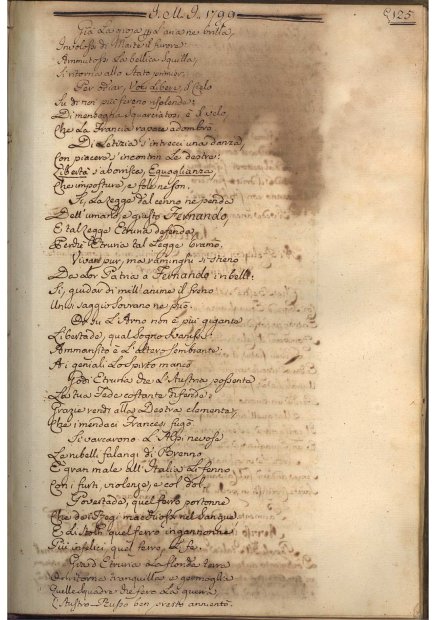 J. M. J. 1799
125
Già la gioja per l'aria ne brilla,
Involossi di Marte il furore:
Ammutossi la bellica squilla,
Si ritorna allo Stato primier.
Per odiar, il Cielo
Su di noi più sereno risplende:
Di menzogna squarciatosi è il velo,
Che la Francia rapace adombrò
Di letizia s'intrecci una danza,
Con piacere s'incontrin le destre:
Libertà s'aborrisca, Eguaglianza,
Che imposture, e fole ne son.
Sì, la Legge dal cenno ne penda
Dell'umano, e giusto Fernando,
E tal Legge Etruria defenda,
Perchè Etruria tal Legge bramò.
Vivan pur, ma raminghi si stieno
Da lor Patria a Fernando i ribelli:
Sì, guidar di mill'anime il freno
Un sì saggio Sovrano ne può.
Or su l'Arno non è più gigante
Libertade, qual sogno svanilla:
Ammansito è l'altero sembiante:
Ai geniali lo spirto mancò
Godi Etruria che l'Austria possenta
La tua fede costante difende:
Grazie rendi alla Destra clemente,
Che i mendaci Francesi fugò.
Si varcarono l'Alpi nevose
Le ribelli falangi di Brenno
E gran male all'Italia
Con i furti, violenze, e col dol.
Povertade, quel ferro portonne
Che dei Regi macchiossi nel sangue
E di stolti quel ferro ingannonne
Più infelici, quel ferro, la fe.
Gira d'Etruria la florida terra
Or ritorna tranquilla e germoglia
Quelle squadre che fero la guerra
L'Austro-Russo ben presto annientò.